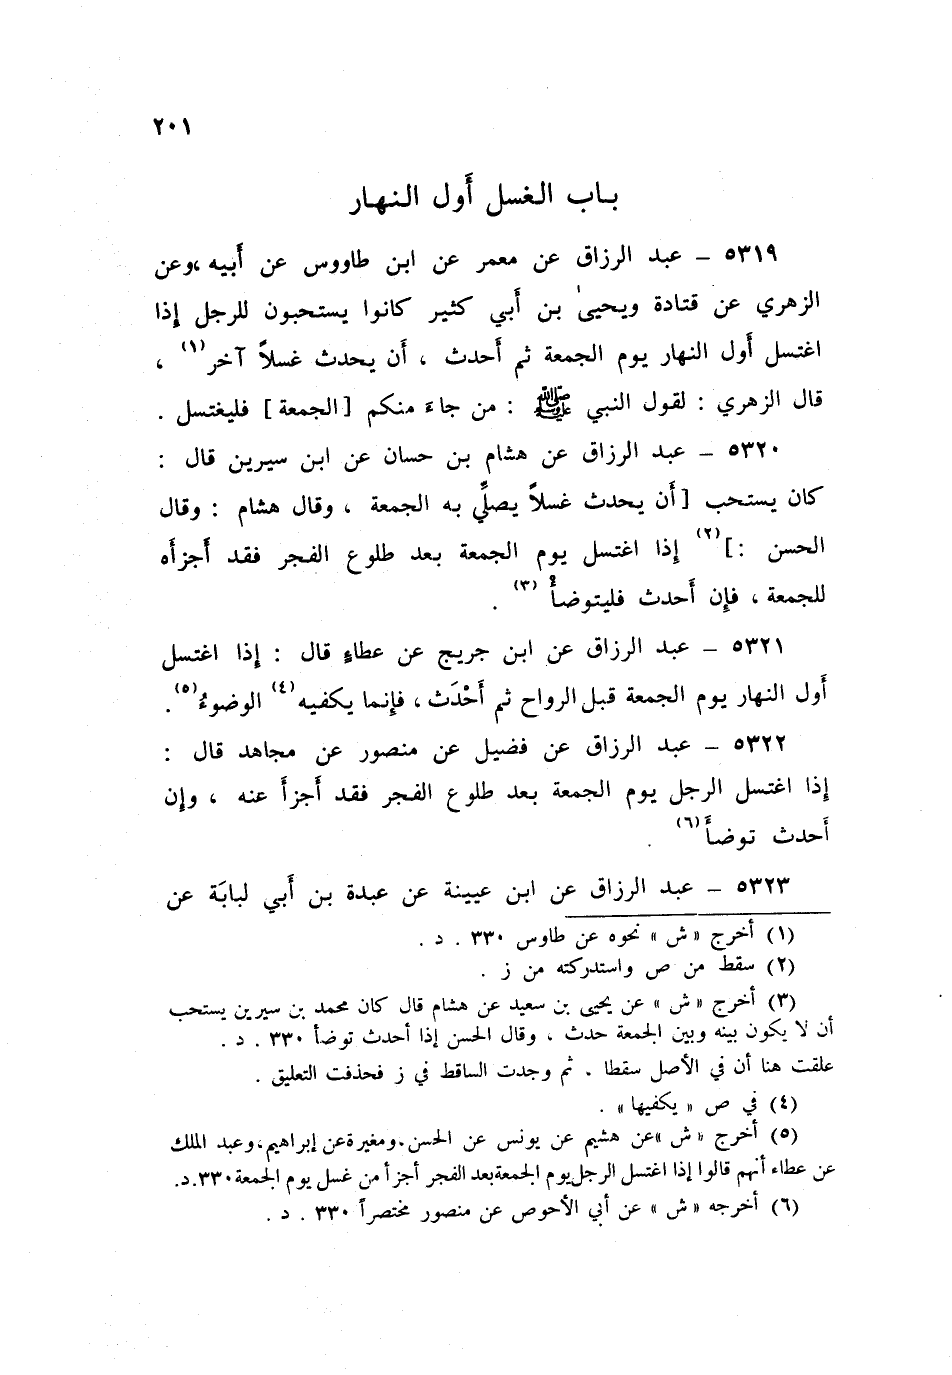 ٢٠١
باب الغسل أول النهار
٥٣١٩ – عبد الرزاق عن معمر عن ابن طاووس عن أبيه ،وعن
الزهري عن قتادة ويحيىٰ بن أبي كثير كانوا يستحبون للرجل إذا
اغتسل أول النهار يوم الجمعة ثم أحدث ، أن يحدث غسلاً آخر(١) ،
قال الزهري : لقول النبي ﷺ : من جاءَ منكم [الجمعة] فليغتسل .
٥٣٢٠ – عبد الرزاق عن هشام بن حسان عن ابن سيرين قال :
كان يستحب [أن يحدث غسلاً يصلِّي به الجمعة ، وقال هشام : وقال
الحسن :](٢) إذا اغتسل يوم الجمعة بعد طلوع الفجر فقد أجزأه
للجمعة ، فإن أحدث فليتوضأْ(٣) .
٥٣٢١ – عبد الرزاق عن ابن جريج عن عطاءٍ قال : إذا اغتسل
أول النهار يوم الجمعة قبل الرواح ثم أَحْدَث ، فإنما يكفيه(٤) الوضوءُ(٥).
٥٣٢٢ – عبد الرزاق عن فضيل عن منصور عن مجاهد قال :
إذا اغتسل الرجل يوم الجمعة بعد طلوع الفجر فقد أجزأَ عنه ، وإن
أحدث توضأَ(٦) .
٥٣٢٣ – عبد الرزاق عن ابن عيينة عن عبدة بن أبي لبابَة عن
(١) أخرج « ش » نحوه عن طاوس ٣٣٠ . د .
(٢) سقط من ص واستدركته من ز .
(٣) أخرج « ش » عن يحيى بن سعيد عن هشام قال كان محمد بن سيرين يستحب
أن لا يكون بينه وبين الجمعة حدث ، وقال الحسن إذا أحدث توضأ ٣٣٠ . د .
علقت هنا أن في الأصل سقطا . ثم وجدت الساقط في ز فحذفت التعليق .
(٤) في ص « يكفيها » .
(٥) أخرج « ش »عن هشيم عن يونس عن الحسن.ومغيرة عن إبراهيم،وعبد الملك
عن عطاء أنهم قالوا إذا اغتسل الرجل يوم الجمعة بعد الفجر أجزأ من غسل يوم الجمعة ٣٣٠.د.
(٦) أخرجه « ش » عن أبي الأحوص عن منصور مختصراً ٣٣٠ . د .